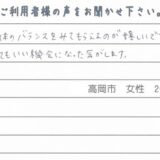 ご利用者様の声をお聞かせ下さい。
体のバランスをみてもらえるのが嬉しいで
てもいい機会になった気がします。
高岡市 女性 2